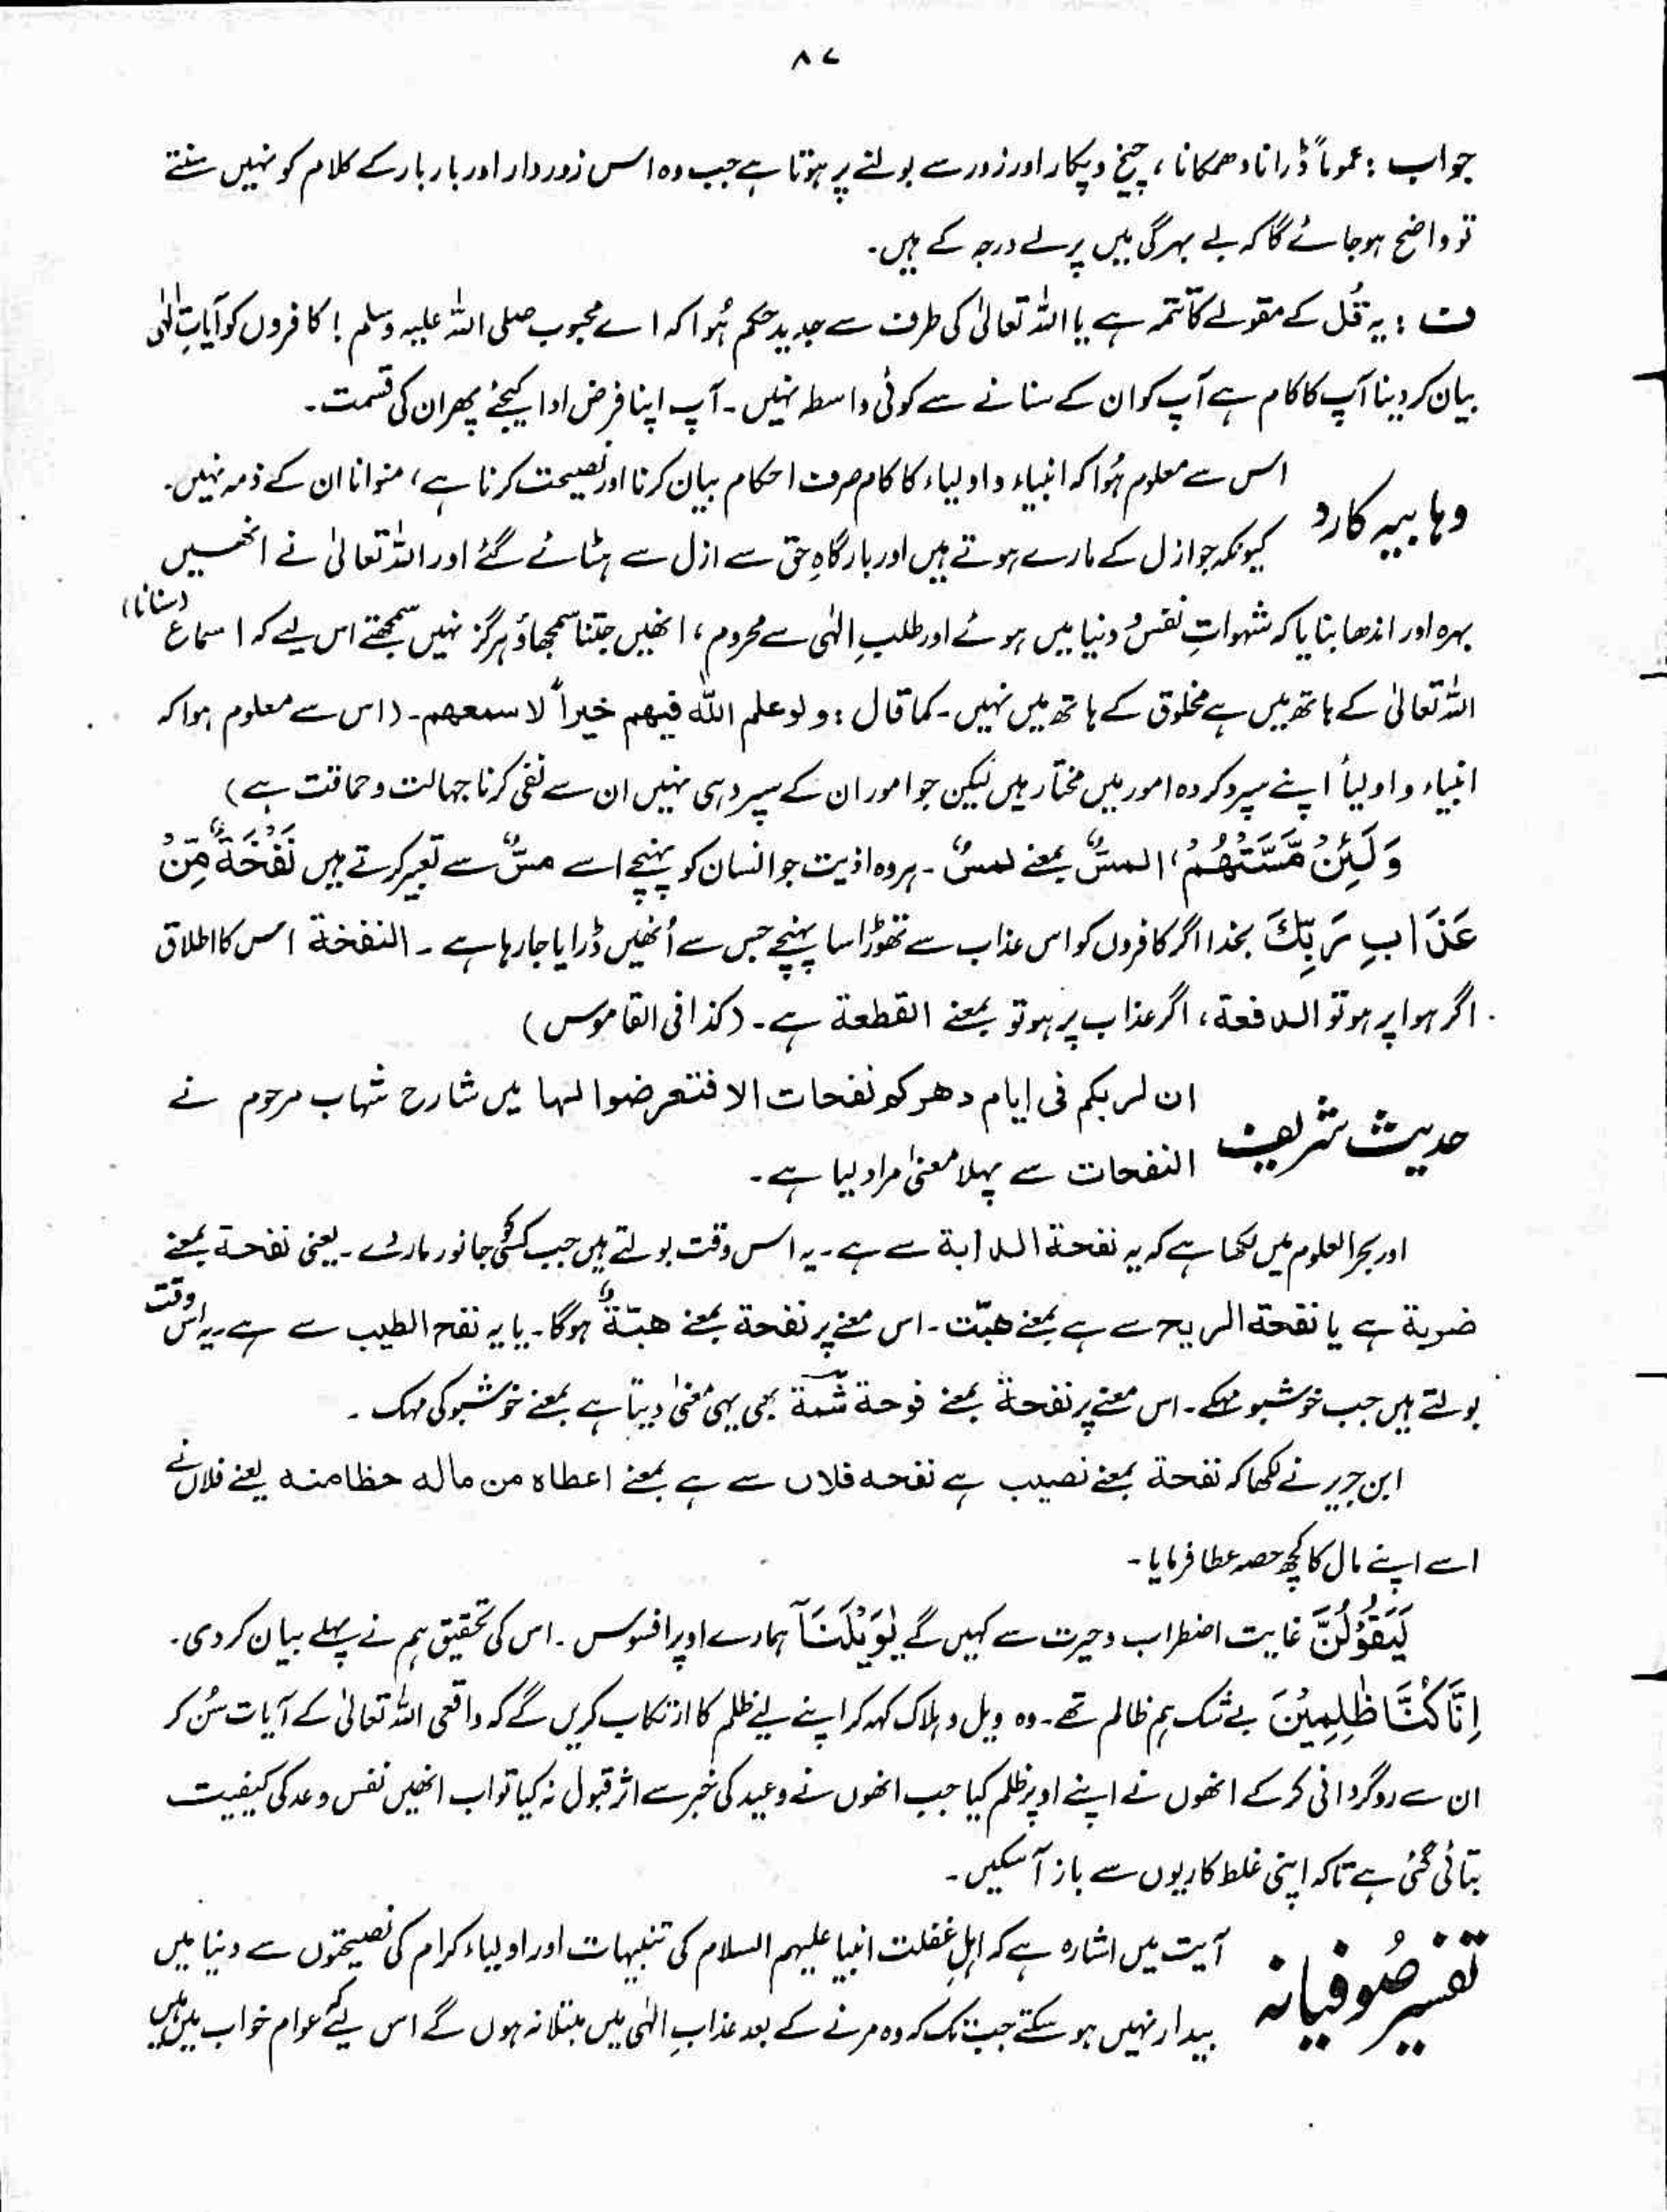 ۸۷
جواب : عموماً ڈرانا دھمکانا ، چیخ و پکار اور زور سے بولنے پر ہوتا ہے جب وہ اس زوردار اور بار بار کے کلام کو نہیں سنتے
تو واضح ہوجائے گا کہ بے بہرگی میں پرلے درجہ کے ہیں۔
ف : یہ قُل کے مقولے کا تتمہ ہے یا اللہ تعالیٰ کی طرف سے جدید حکم ہُوا کہ اے محبوب صلی اللہ علیہ وسلم ! کافروں کو آیاتِ الٰہی
بیان کر دینا آپ کا کام ہے آپ کو ان کے سنانے سے کوئی واسطہ نہیں ۔ آپ اپنا فرض ادا کیجئے پھر ان کی قسمت۔
وہابیہ کا رد
اس سے معلوم ہُوا کہ انبیاء و اولیاء کا کام صرف احکام بیان کرنا اور نصیحت کرنا ہے ، منوانا ان کے ذمہ نہیں۔
کیونکہ جو ازل کے مارے ہوتے ہیں اور بارگاہِ حق سے ازل سے ہٹائے گئے اور اللہ تعالیٰ نے انھیں
بہرہ اور اندھا بنایا کہ شہواتِ نفس دنیا میں ہوئے اور طلبِ الٰہی سے محروم ، انھیں جتنا سمجھاؤ ہرگز نہیں سمجھتے اس لیے کہ اسماع (سنانا)
اللہ تعالیٰ کے ہاتھ میں ہے مخلوق کے ہاتھ میں نہیں ۔ کما قال : ولو علم اللہ فیھم خیراً لاسمعھم ۔ (اس سے معلوم ہوا کہ
انبیاء و اولیاً اپنے سپرد کردہ امور میں مختار ہیں لیکن جو امور ان کے سپرد ہی نہیں ان سے نفی کرنا جہالت و حماقت ہے)
وَلَئِنْ مَّسَّتْهُمْ ، المسّ بمعنے لمس ۔ ہر وہ اذیت جو انسان کو پہنچے اسے مسّ سے تعبیر کرتے ہیں نَفْخَةٌ مِّنْ
عَذَابِ رَبِّكَ بخدا اگر کافروں کو اس عذاب سے تھوڑا سا پہنچے جس سے اُنھیں ڈرایا جارہا ہے ۔ النفخة اس کا اطلاق
اگر ہوا پر ہو تو الدفعة ، اگر عذاب پر ہو تو بمعنے القطعة ہے ۔ (کذا فی القاموس)
حدیث شریف
ان لربکم فی ایام دھرکم نفحات الا فتعرضوا لہا میں شارح شہاب مرحوم نے
النفحات سے پہلا معنیٰ مراد لیا ہے۔
اور بحر العلوم میں لکھا ہے کہ یہ نفحة الدابة سے ہے ۔ یہ اس وقت بولتے ہیں جب کوئی جانور مارے ۔ یعنی نفحة بمعنے
ضربة ہے یا نفحة الریح سے ہے بمعنے ھبّت ۔ اس معنے پر نفحة بمعنے ھبّةٌ ہوگا ۔ یا یہ نفح الطیب سے ہے ۔ یہ اس وقت
بولتے ہیں جب خوشبو مہکے ۔ اس معنے پر نفحة بمعنے فوحة شمّة بھی یہی معنیٰ دیتا ہے بمعنے خوشبو کی مہک ۔
ابن جریر نے لکھا کہ نفحة بمعنے نصیب ہے نفحہ فلاں سے ہے بمعنے اعطاہ من مالہ حظا منہ یعنے فلاں نے
اسے اپنے مال کا کچھ حصہ عطا فرمایا ۔
لَيَقُوْلُنَّ غایت اضطراب و حیرت سے کہیں گے يٰوَيْلَنَآ ہمارے اوپر افسوس ۔ اس کی تحقیق ہم نے پہلے بیان کر دی ۔
اِنَّا كُنَّا ظٰلِمِيْنَ بے شک ہم ظالم تھے ۔ وہ ویل و ہلاک کہہ کر اپنے لیے ظلم کا ارتکاب کریں گے کہ واقعی اللہ تعالیٰ کے آیات سُن کر
ان سے روگردانی کر کے انھوں نے اپنے اوپر ظلم کیا جب انھوں نے وعید کی خبر سے اثر قبول نہ کیا تو اب انھیں نفس وعد کی کیفیت
بتائی گئی ہے تاکہ اپنی غلط کاریوں سے باز آسکیں ۔
تفسیر صُوفیانہ
آیت میں اشارہ ہے کہ اہلِ غفلت انبیا علیہم السلام کی تنبیہات اور اولیاء کرام کی نصیحتوں سے دنیا میں
بیدار نہیں ہو سکتے جب تک کہ وہ مرنے کے بعد عذابِ الٰہی میں مبتلا نہ ہوں گے اس لیے کہ عوام خواب میں ہیں